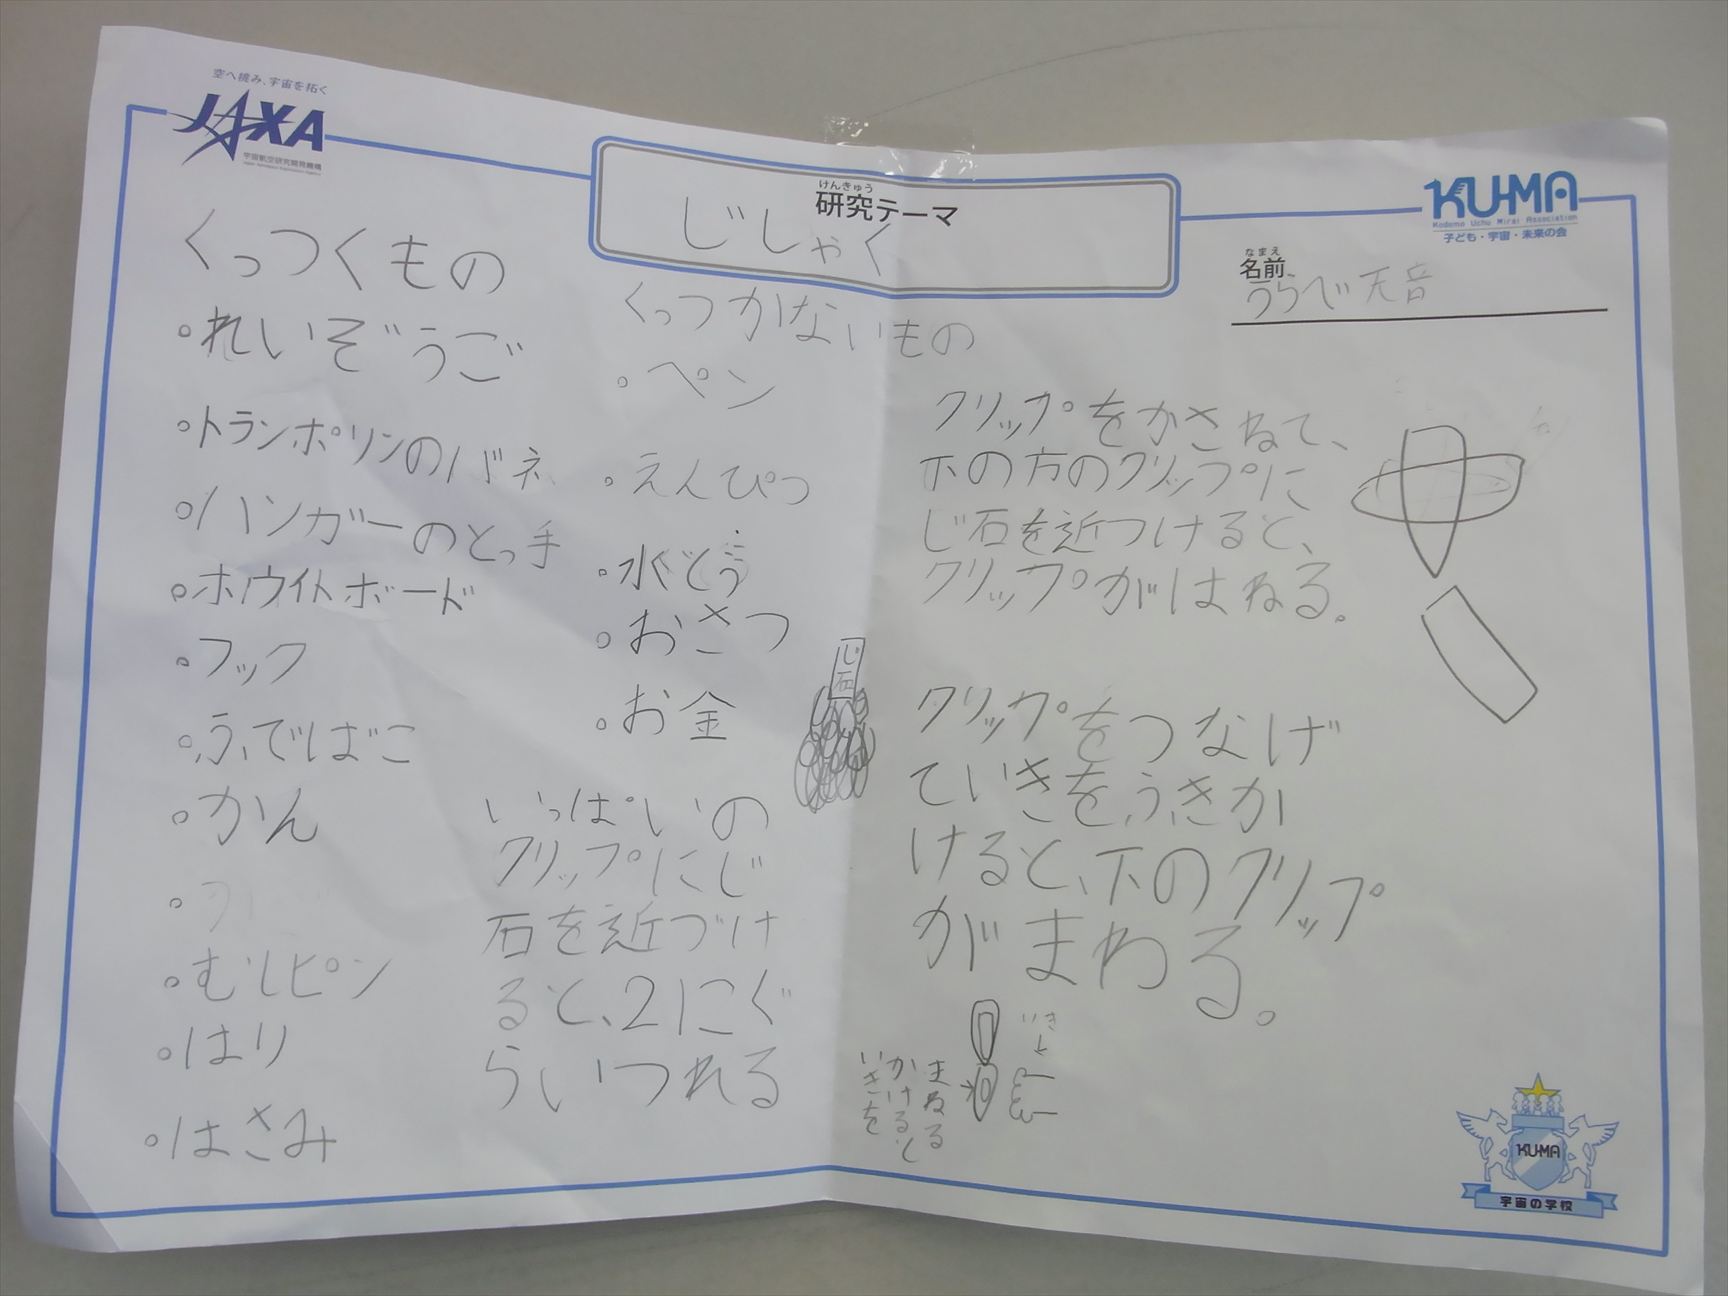 空へ挑み、宇宙を拓く
JAXA
宇宙航空研究開発機構
Japan Aerospace Exploration Agency
けんきゅう
研究テーマ
じしゃく
KU-MA
Kodomo Uchu Mirai Association
子ども・宇宙・未来の会
なまえ
名前
うらべ天音
くっつくもの
・れいぞうこ
・トランポリンのバネ
・ハンガーのとっ手
・ホワイトボード
・フック
・ふでばこ
・かん
・むしピン
・はり
・はさみ
くっつかないもの
・ペン
・えんぴつ
・水とう
・おさつ
・お金
じ石
いっぱいの
クリップにじ
石を近づけ
ると、2にぐ
らいつれる
クリップをかさねて、
下の方のクリップに
じ石を近つけると、
クリップがはねる。
クリップをつなげ
ていきをふきか
けると、下のクリップ
がまわる。
いき
いきを
かけると
まわる
KU-MA
宇宙の学校